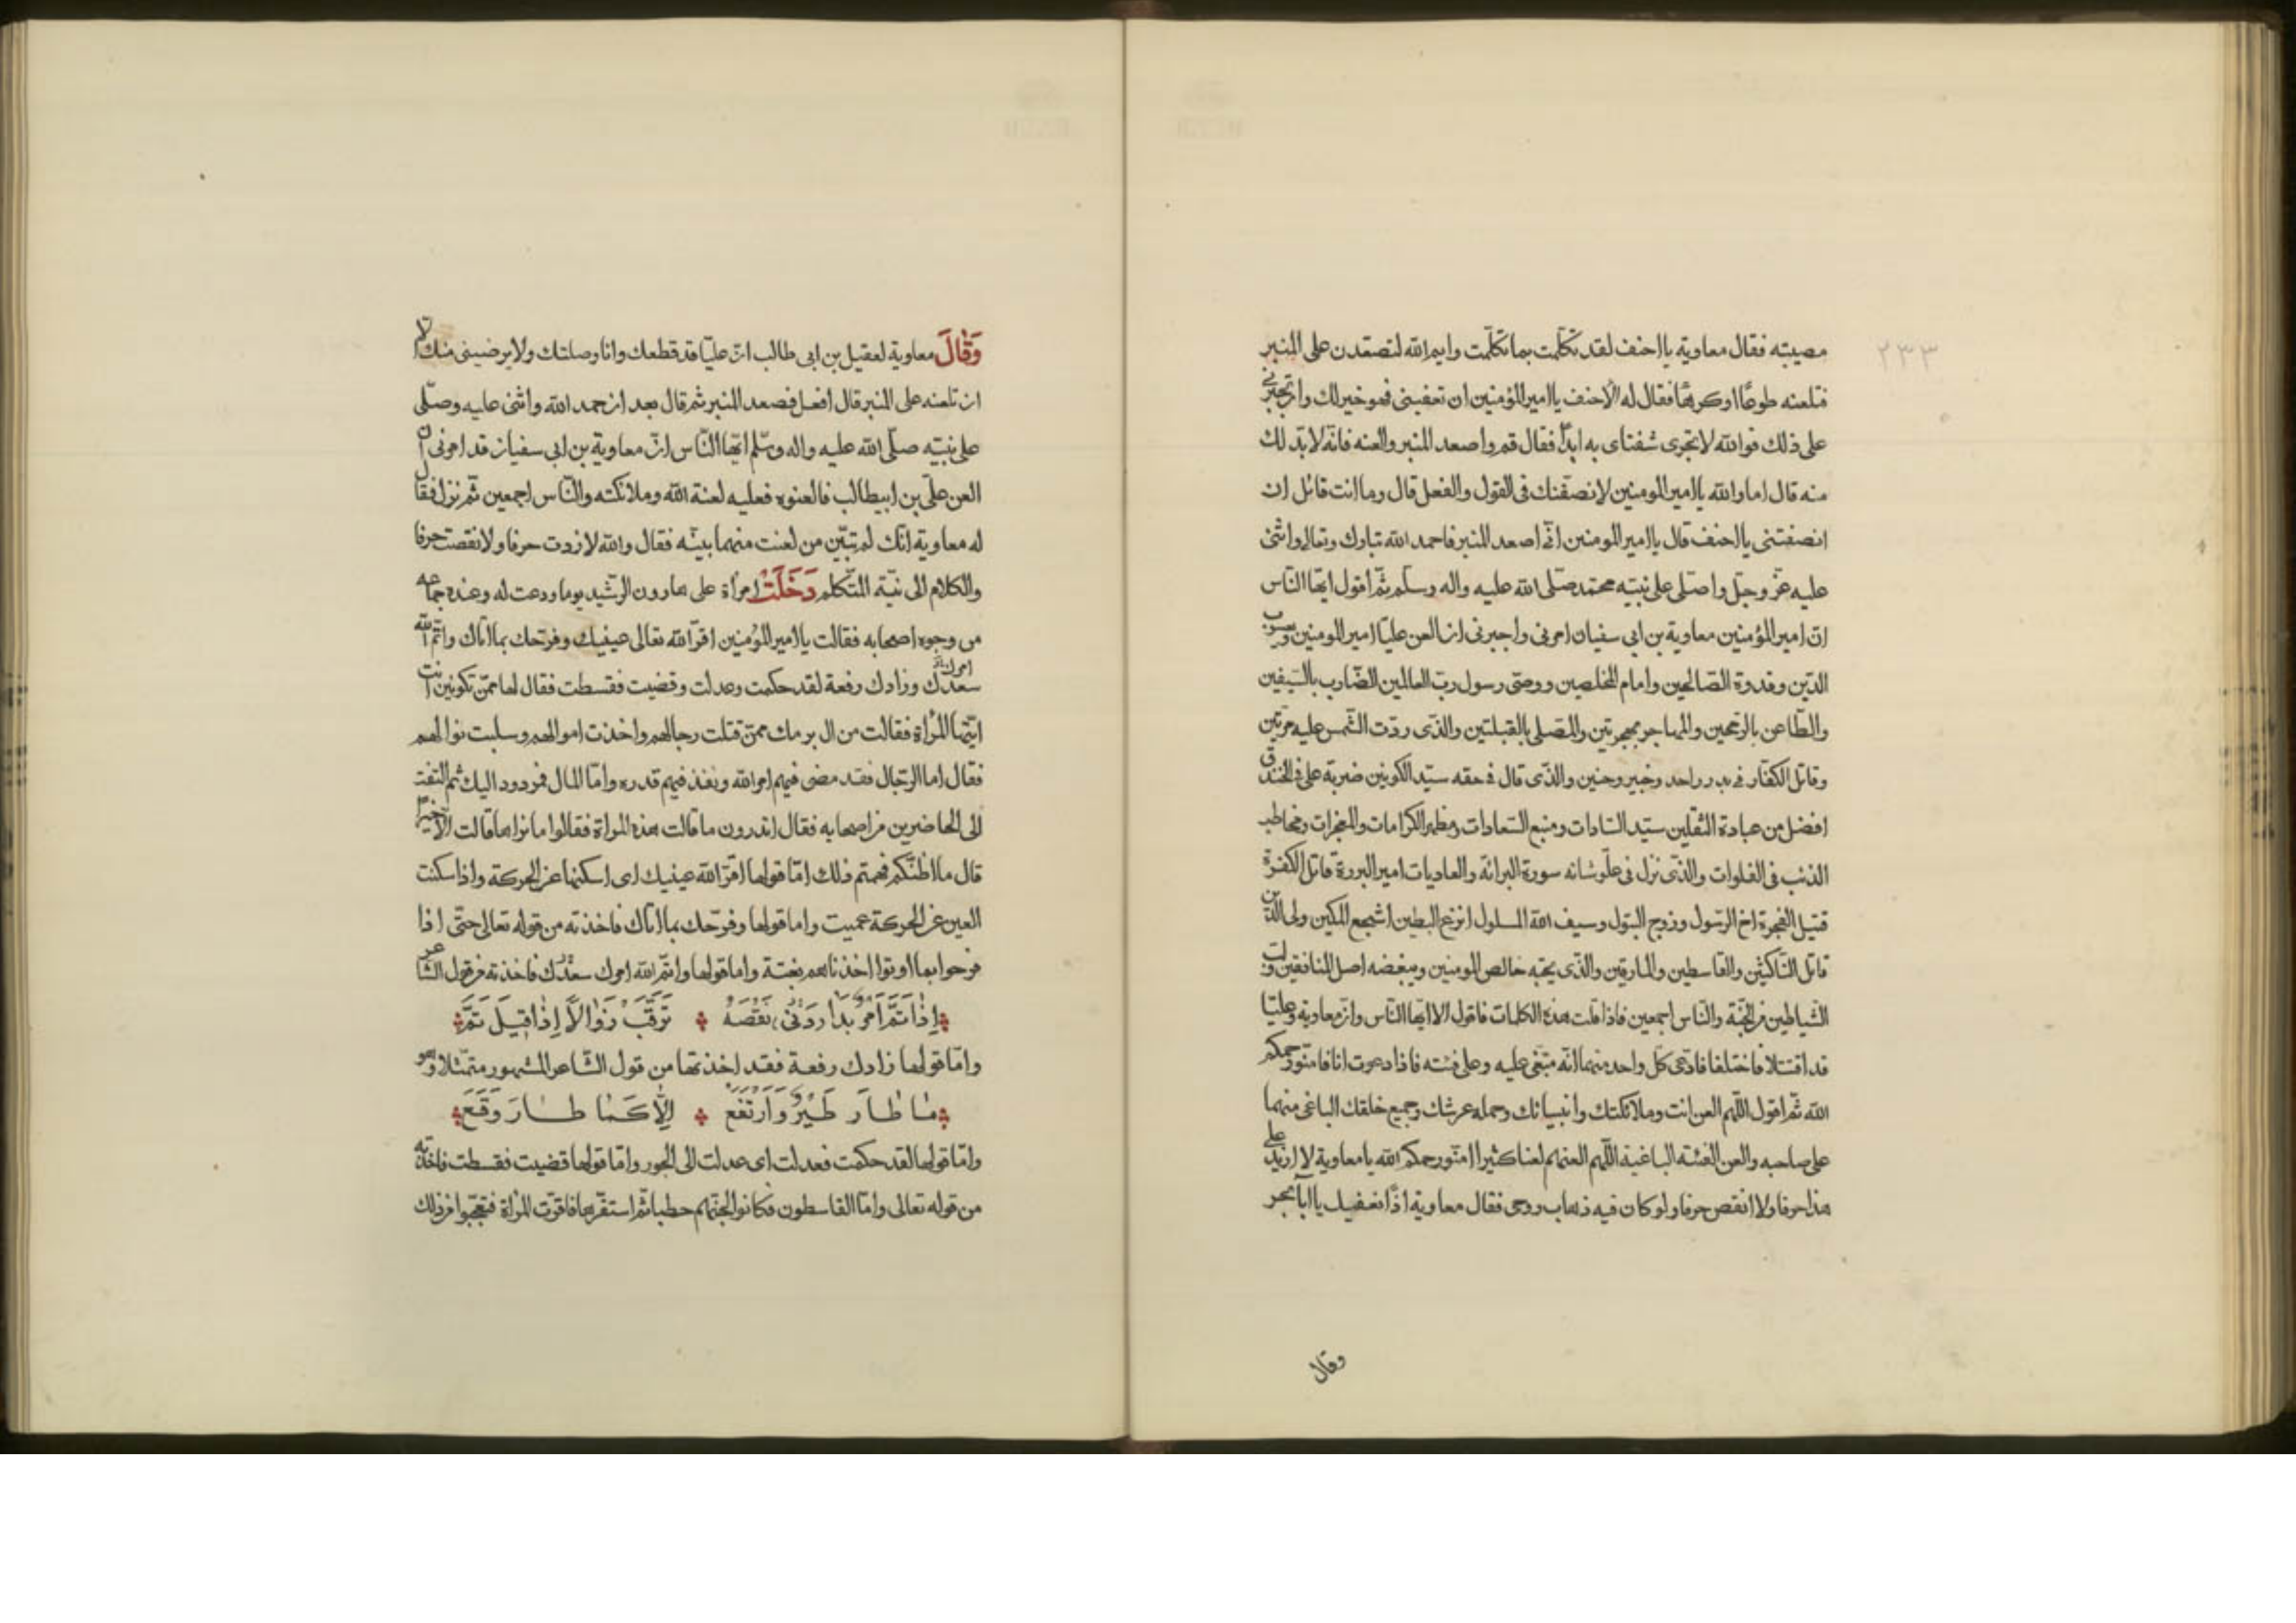 ٢٣٣
مصيبته فقال معاوية يا احنف لقد تكلمت بما تكلمت وايم الله لتصعدن على المنبر
فتلعنه طوعًا او كرهًا فقال له الاحنف يا امير المؤمنين ان تعفينى فهو خير لك وان تجبرنى
على ذلك فوالله لا تجرى شفتاى به ابدًا فقال قم واصعد المنبر والعنه فانه لا بد لك
منه قال اما والله يا امير المومنين لانصفنك فى القول والفعل قال وما انت قائل ان
انصفتنى يا احنف قال يا امير المومنين انى اصعد المنبر فاحمد الله تبارك وتعالى واثنى
عليه عزّ وجلّ واصلى على نبيّه محمّد صلى الله عليه واله وسلّم ثمّ اقول ايّها النّاس
انّ امير المؤمنين معاوية بن ابى سفيان امرنى واجبرنى ان العن عليّا امير المومنين ويعسوب
الدّين وقدوة الصّالحين وامام المخلصين ووصىّ رسول ربّ العالمين الضّارب بالسّيفين
والطّاعن بالرّمحين والمهاجر بهجرتين والمصلى بالقبلتين والذى ردّت الشّمس عليه مرّتين
وقاتل الكفّار فى بدر واحد وخيبر وحنين والذى قال فى حقه سيّد الكونين ضربة على فى الخندق
افضل من عبادة الثقلين سيّد السّادات ومنبع السّعادات ومظهر الكرامات والمعجزات ومخاطب
الذئب فى الفلوات والذى نزل فى علوّ شانه سورة البرائة والعاديات امير البررة قاتل الكفرة
قتيل الفجرة اخ الرّسول وزوج البتول وسيف الله المسلول انزع البطين اشجع المكين ولى الدّين
قاتل النّاكثين والقاسطين والمارقين والذى يحبّه خالص المومنين ويبغضه اصل المنافقين
الشّياطين من الجنّة والنّاس اجمعين فاذا قلت هذه الكلمات فاقول الا ايّها النّاس وان معاوية وعليّا
قد اقتتلا فاختلفا فادّعى كلّ واحد منهما انّه مبغىّ عليه وعلى فئته فاذا دعوت انا فامنّوا رحمكم
الله ثمّ اقول اللّهم العن انت وملائكتك وانبيائك وحملة عرشك وجميع خلقك الباغى منهما
على صاحبه والعن الفئة الباغية اللّهم العنهم لعنا كثيرا امنّوا رحمكم الله يا معاوية لا ازيد على
هذا حرفا ولا انقص حرفا ولو كان فيه ذهاب روحى فقال معاوية اذًا نعفيك يا ابا بحر
وقال
وَقَالَ معاوية لعقيل بن ابى طالب انّ عليّا قد قطعك وانا وصلتك ولا يرضينى منك الّا
ان تلعنه على المنبر قال افعل فصعد المنبر ثم قال بعد ان حمد الله واثنى عليه وصلّى
على نبيّه صلّى الله عليه واله وسلّم ايّها النّاس انّ معاوية بن ابى سفيان قد امرنى ان
العن علىّ بن ابيطالب فالعنوه فعليه لعنة الله وملائكته والنّاس اجمعين ثمّ نزل فقال
له معاوية انّك لم تبيّن من لعنت منهما بيّنه فقال والله لا زدت حرفا ولا نقصت حرفا
والكلام الى نيّة المتكلم دَخَلَتْ امرأة على هارون الرّشيد يوما ودعت له وعنده جماعه
من وجوه اصحابه فقالت يا امير المؤمنين اقرّ الله تعالى عينيك وفرحك بما اتاك واتمّ الله
امرك
سعدك وزادك رفعة لقد حكمت وعدلت وقضيت فقسطت فقال لها ممّن تكونين انت
ايّتها المرأة فقالت من ال برمك ممّن قتلت رجالهم واخذت اموالهم وسلبت نوالهم
فقال اما الرّجال فقد مضى فيهم امر الله ونفذ فيهم قدره وامّا المال فمردود اليك ثم التفت
الى الحاضرين من اصحابه فقال اتدرون ما قالت هذه المراة فقالوا ما نراها قالت الّا خيرًا
قال ما اظنّكم فهمتم ذلك امّا قولها اقرّ الله عينيك اى اسكنها عن الحركة واذا سكنت
العين عن الحركة عميت واما قولها وفرّحك بما اتاك فاخذته من قوله تعالى حتّى اذا
فرحوا بما اوتوا اخذناهم بغتة واما قولها واتمّ الله امرك سعدك فاخذته من قول الشاعر
اِذَا تَمَّ اَمْرٌ بَدَا نَقْصَهُ تَرَقَّبْ زَوَالًا اِذَا قِيلَ تَمَّ
وامّا قولها زادك رفعة فقد اخذتها من قول الشّاعر المشهور متمثلا وهو
مَا طَارَ طَيْرٌ وَارْتَفَعَ اِلَّا كَمَا طَارَ وَقَعَ
وامّا قولها لقد حكمت فعدلت اى عدلت الى الجور وامّا قولها قضيت فقسطت فاخذته
من قوله تعالى وامّا القاسطون فكانوا لجهنّم حطبا ثم استقرّها فاقرّت المرأة فتعجّبوا من ذلك